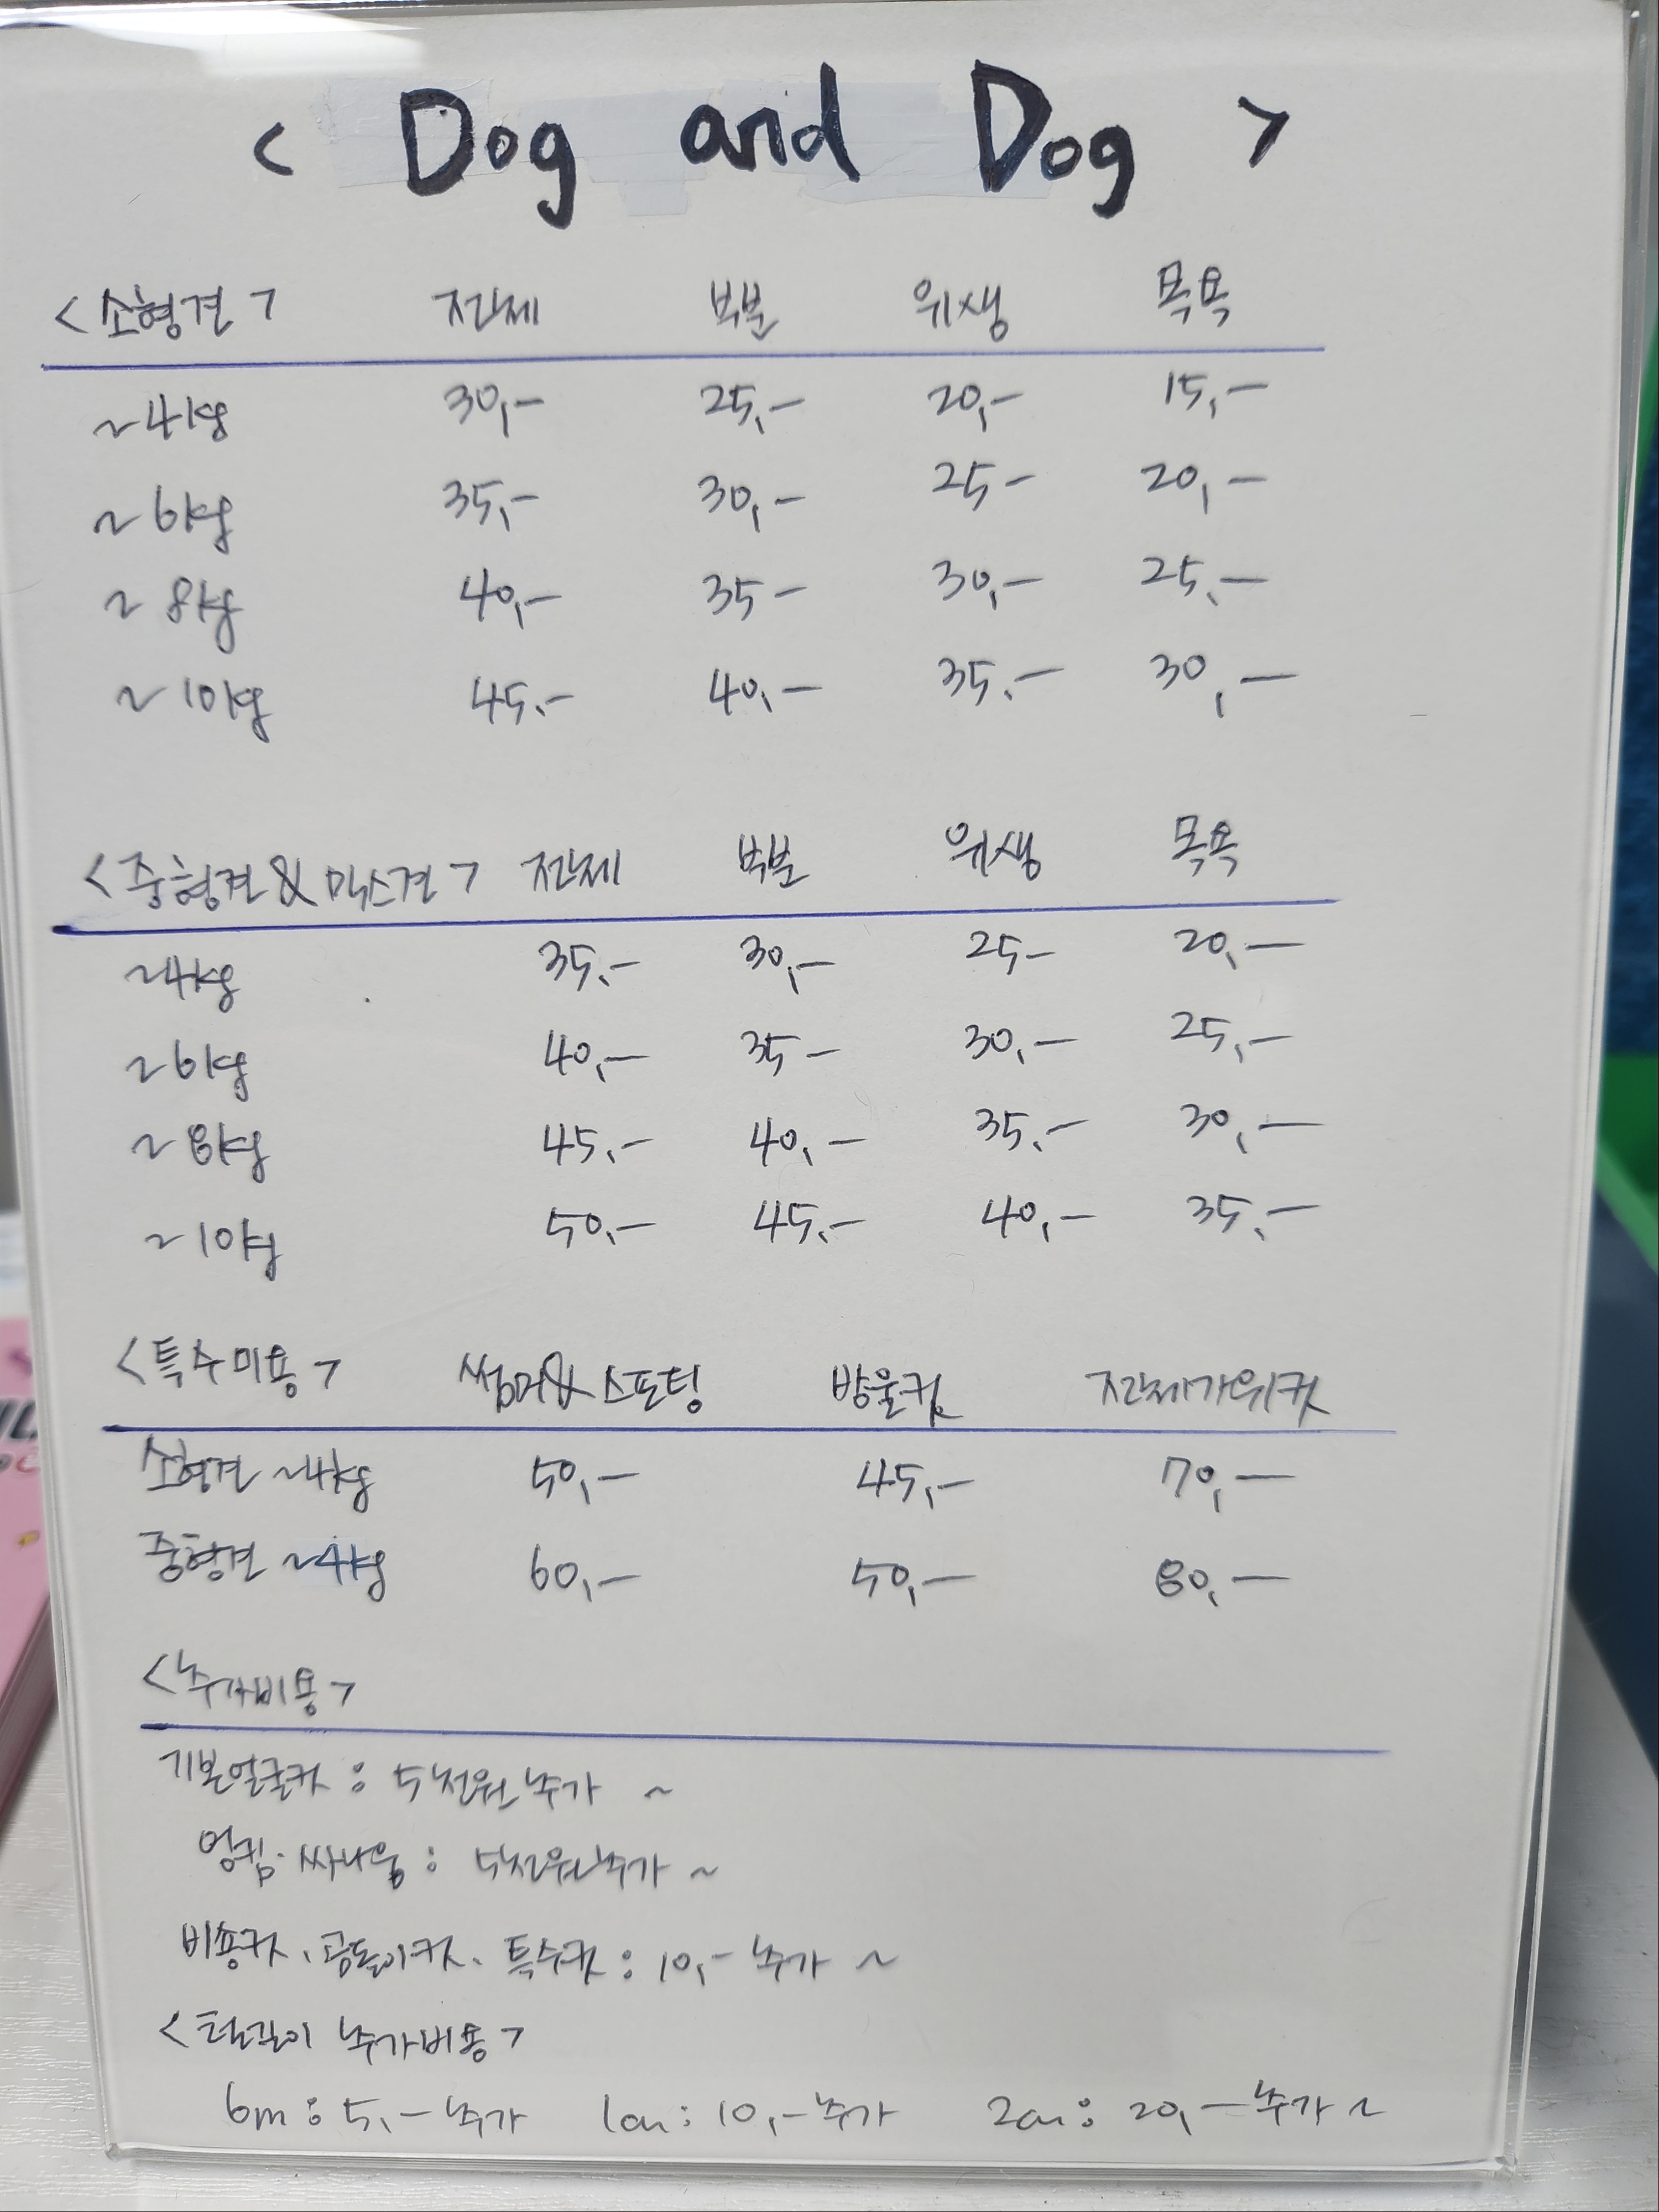 < Dog and Dog >
<소형견> 전체 부분 위생 목욕
~4kg 30,- 25,- 20,- 15,-
~6kg 35,- 30,- 25- 20,-
~8kg 40,- 35- 30,- 25,-
~10kg 45,- 40,- 35,- 30,-
<중형견&믹스견> 전체 부분 위생 목욕
~4kg 35,- 30,- 25- 20,-
~6kg 40,- 35- 30,- 25,-
~8kg 45,- 40,- 35,- 30,-
~10kg 50,- 45,- 40,- 35,-
<특수미용> 썸머&스포팅 방울컷 전체가위컷
소형견 ~4kg 50,- 45,- 70,-
중형견 ~4kg 60,- 50,- 80,-
<추가비용>
기본얼굴컷 : 5천원 추가 ~
엉킴·싸나움 : 5천원추가 ~
비숑컷, 곰돌이컷, 특수컷 : 10,- 추가 ~
<털길이 추가비용>
6m : 5,- 추가 1cm : 10,- 추가 2cm : 20,- 추가 ~